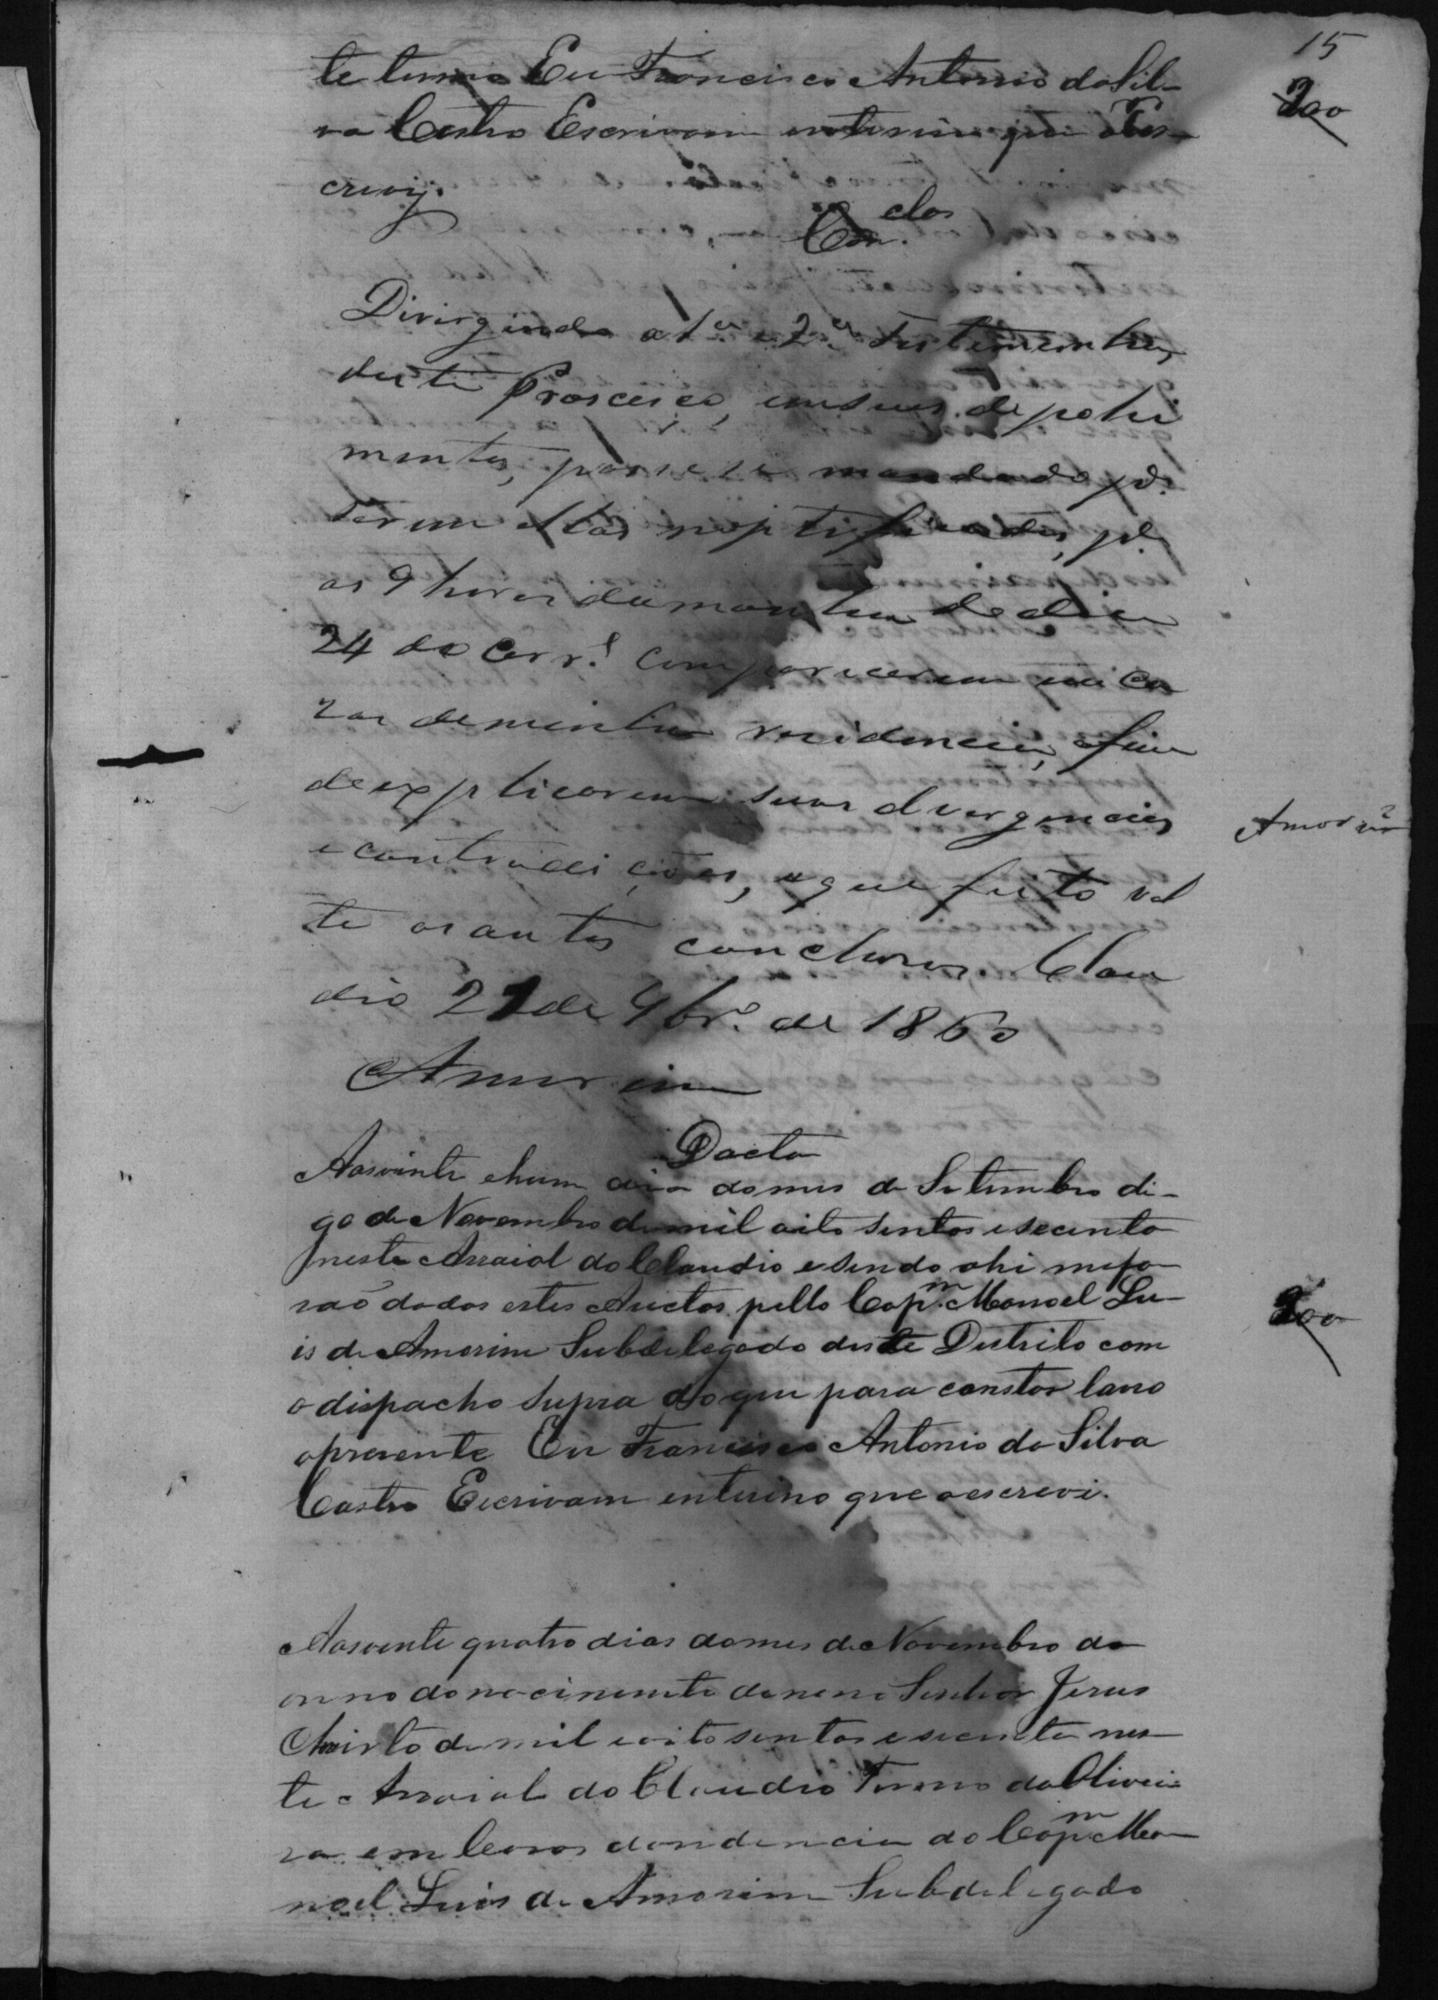 15
te termo Eu Francisco Antonio da Sil-
va Castro Escrivam enterino que o es-
crevy.
200
Cm. clos
Divirgindo a 1ª e 2ª Testemunhas
deste Proscesço, em seus depohi
mentos, passe-se mandado pª
serem ellas noptificadas, pª
as 9 horas da manhan do dia
24 do corr.e comparecerem em ca
zas de minha rezidencia, afim
de explicarem suas divergencias
e contradições, o que feito vol
te os autos concluzos. Clau
dio 21 de 9br.º de 1860
Amorim
Amorim
Dacta
Aos vinte e hum dia do mes de Setembro di-
go de Novembro de mil oito sentos e secenta
neste Arraial do Claudio e sendo ahi me fo
raõ dados estes Auctos pello Capm. Manoel Lu-
is de Amorim Subdelegado deste Destrito com
o dispacho supra do que para constar lavro
o prezente Eu Francisco Antonio da Silva
Castro Escrivam enterino que o escrevi.
200
Aos vente quatro dias do mes de Novembro do
anno do nacimento de noço Senhor Jezus
Christo de mil e oito sentos e secenta nes-
te Arraial do Claudio Termo da Olivei-
ra em Cazas da ridencia do Capm. Ma-
noel Luis de Amorim Subdelegado